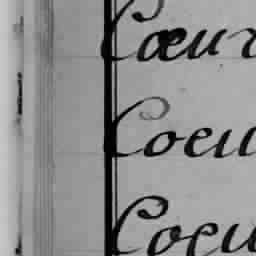 Cœur
Coeu
Coeu